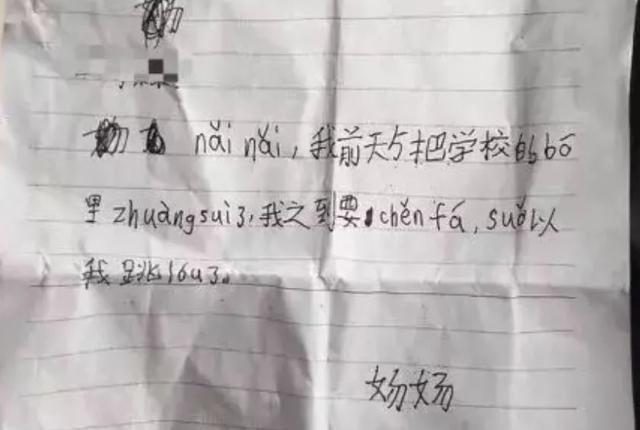 nǎi nǎi, 我前天与把学校的bō
里zhuàngsui了,我之到要chěn fá, suǒ以
我跳lóu了。
妫妫